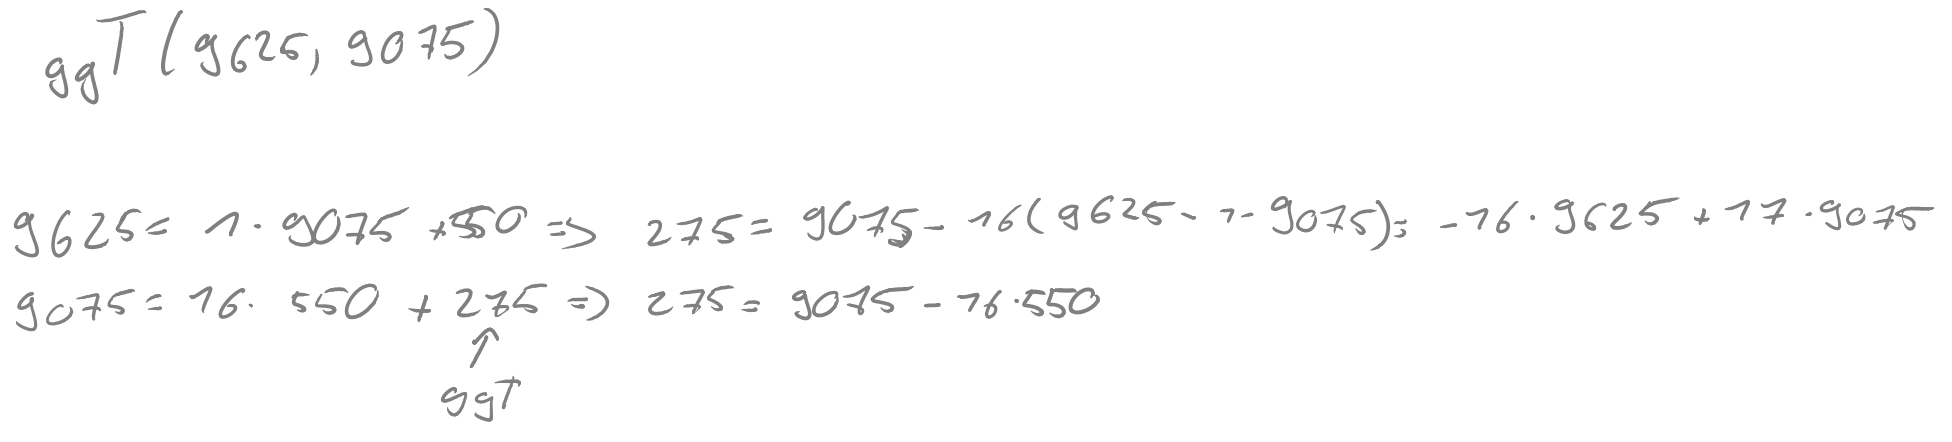 ggT (9625, 9075)
9625 = 1 · 9075 + 550 => 275 = 9075 - 16(9625 - 1 · 9075) = -16 · 9625 + 17 · 9075
9075 = 16 · 550 + 275 => 275 = 9075 - 16 · 550
↑
ggT